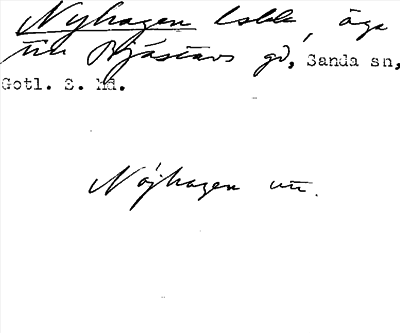 Nyhagen Lskk, äga
till Bjästavs gd, Sanda sn,
Gotl. S. hd.
Nöjhagen utt.